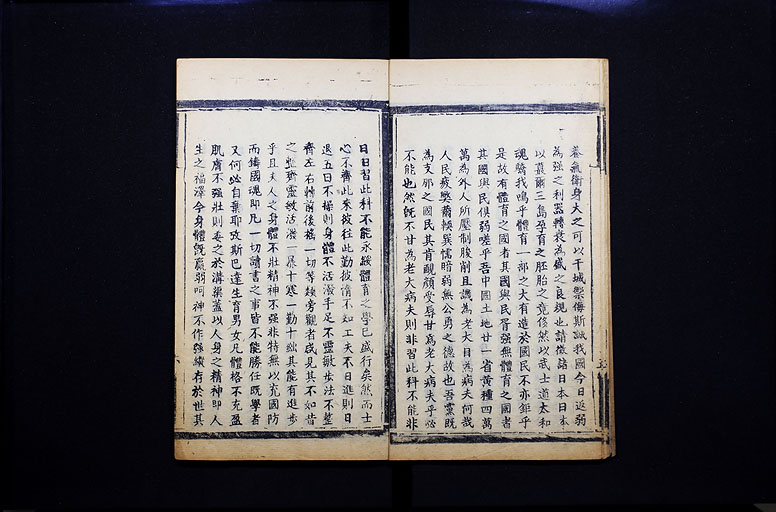 養氣衛身大之可以干城禦侮斯誠我國今日返弱
為強之利器轉衰為盛之良規也請徵諸日本日本
以蕞爾三島孕育之胚胎之竟侈然以武士道太和
魂驕我嗚乎體育一部之大有造於國民不亦鉅乎
是故有體育之國者其國與民胥強無體育之國者
其國與民俱弱嗟乎吾中國土地廿一省黃種四萬
萬為外人所壓制朘削且譏為老大目為病夫何哉
人民疲樊薾輭巽懦暗弱無公勇之德故也吾靈既
為支那之國民其肯靦顏受辱甘為老大病夫乎必
不能也然既不甘為老大病夫則非習此科不能非
日日習此科不能永綴體育之學已盛行矣然而士
心不齊此來彼往此勤彼惰不知工夫不日進則日
退五日不操則身體不活潑手足不靈敏步法不整
齊左右轉前後揺一切等類旁觀者咸見其不如昔
之整齊靈敏活潑一暴十寒一勤十絀其能有進步
乎且夫人之身體不壯精神不強非特無以充國防
而鑄國魂即凡一切讀書之事皆不能勝任既學者
又何必自棄耶攷斯巴達生育男女凡體格不充盈
肌膚不強壯則委之於溝渠蓋以人身之精神即人
生之福澤今身體既羸弱呵神不作强纔有於世其